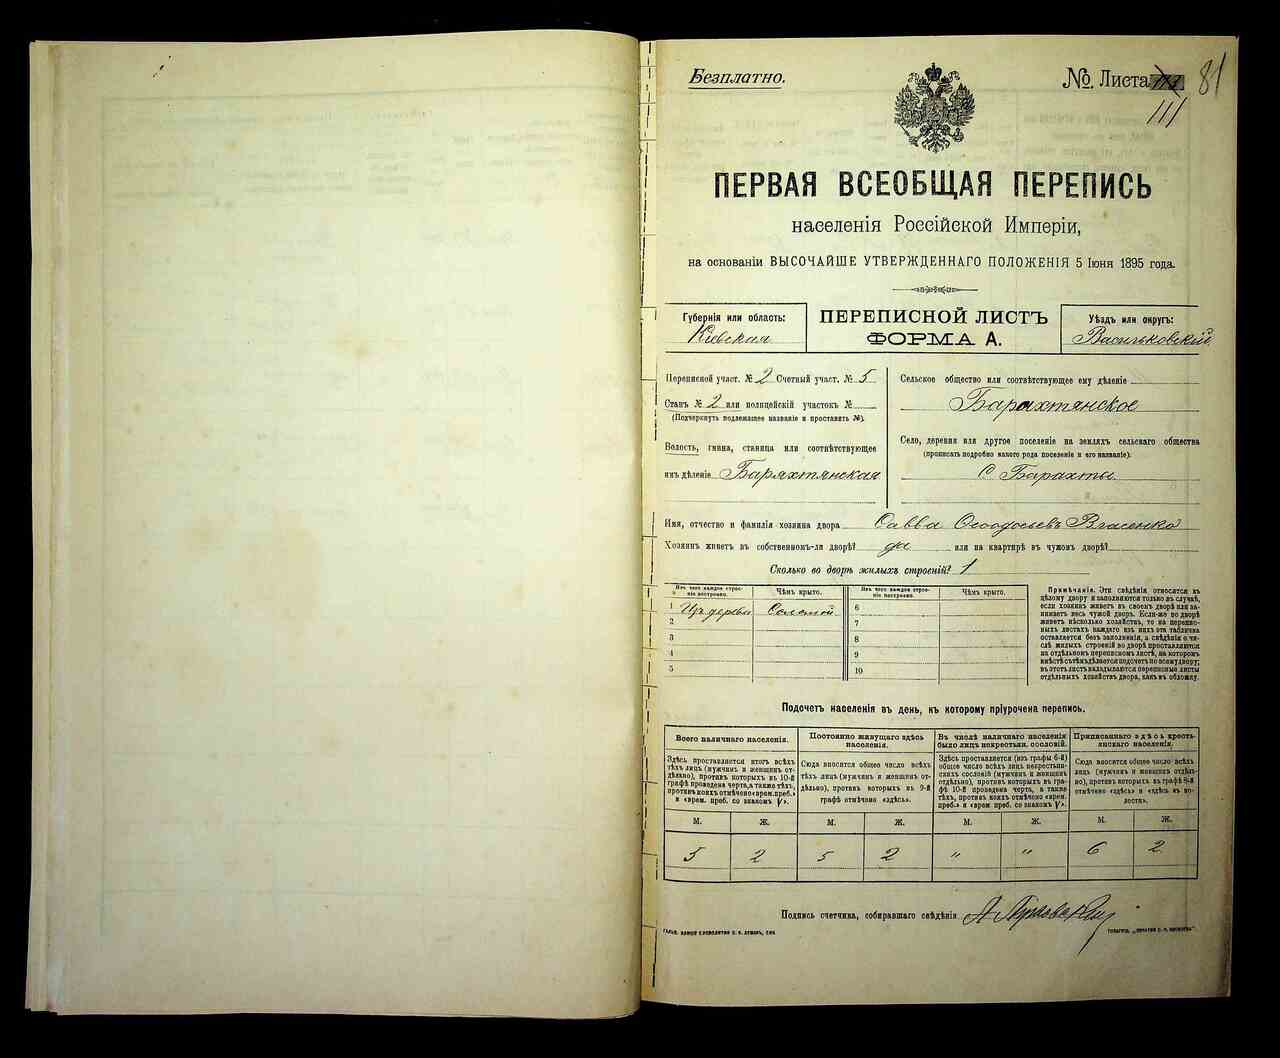 Безплатно.
№ Листа 111 81
ПЕРВАЯ ВСЕОБЩАЯ ПЕРЕПИСЬ
населенія Россійской Имперіи,
на основаніи ВЫСОЧАЙШЕ УТВЕРЖДЕННАГО ПОЛОЖЕНІЯ 5 Іюня 1895 года.
Губернія или область:
Кіевская
ПЕРЕПИСНОЙ ЛИСТЪ
ФОРМА А.
Уѣздъ или округъ:
Васильковскій
Переписной участ. № 2 Счетный участ. № 5
Станъ № 2 или полицейскій участокъ №
(Подчеркнуть подлежащее названіе и проставить №).
Волость, гмина, станица или соотвѣтствующее
имъ дѣленіе Барахтянская
Сельское общество или соотвѣтствующее ему дѣленіе
Барахтянское
Село, деревня или другое поселеніе на земляхъ сельскаго общества
(прописать подробно какого рода поселеніе и его названіе).
С Барахты.
Имя, отчество и фамилія хозяина двора Савва Ѳеодосьевъ Власенко
Хозяинъ живетъ въ собственномъ-ли дворѣ? да или на квартирѣ въ чужомъ дворѣ?
Сколько во дворѣ жилыхъ строеній? 1
Изъ чего каждое строеніе построено.
Чѣмъ крыто.
Изъ чего каждое строеніе построено.
Чѣмъ крыто.
1 Изъ дерева Соломой 6
2 7
3 8
4 9
5 10
Примѣчаніе. Эти свѣдѣнія относятся къ
цѣлому двору и заполняются только въ случаѣ,
если хозяинъ живетъ въ своемъ дворѣ или занимаетъ
весь чужой дворъ. Если-же во дворѣ
живетъ нѣсколько хозяйствъ, то на переписныхъ
листахъ каждаго изъ нихъ эта табличка
оставляется безъ заполненія, а свѣдѣнія о числѣ
жилыхъ строеній во дворѣ проставляются
на отдѣльномъ переписномъ листѣ, на которомъ
вмѣстѣ съ тѣмъ дѣлается подсчетъ по всему двору;
въ этотъ листъ вкладываются переписные листы
отдѣльныхъ хозяйствъ двора, какъ въ обложку.
Подсчетъ населенія въ день, къ которому пріурочена перепись.
Всего наличнаго населенія.
Здѣсь проставляется итогъ всѣхъ
тѣхъ лицъ (мужчинъ и женщинъ отдѣльно),
противъ которыхъ въ 10-й
графѣ проведена черта, а также тѣхъ,
противъ коихъ отмѣчено «врем. преб.»
и «врем. преб. со знакомъ V».
Постоянно живущаго здѣсь
населенія.
Сюда вносится общее число всѣхъ
тѣхъ лицъ (мужчинъ и женщинъ отдѣльно),
противъ которыхъ въ 9-й
графѣ отмѣчено «здѣсь».
Въ числѣ наличнаго населенія
было лицъ некрестьян. сословій.
Здѣсь проставляется (изъ графы 6-й)
общее число всѣхъ лицъ некрестьянскихъ
сословій (мужчинъ и женщинъ
отдѣльно), противъ которыхъ въ графѣ
10-й проведена черта, а также
тѣхъ, противъ коихъ отмѣчено «врем.
преб.» и «врем. преб. со знакомъ V».
Приписаннаго здѣсь крестьянскаго
населенія.
Сюда вносится общее число всѣхъ
лицъ (мужчинъ и женщинъ отдѣльно),
противъ которыхъ въ графѣ 8-й
отмѣчено «здѣсь» и «здѣсь въ волости».
М. Ж. М. Ж. М. Ж. М. Ж.
5 2 5 2 " " 6 2
Подпись счетчика, собиравшаго свѣдѣнія